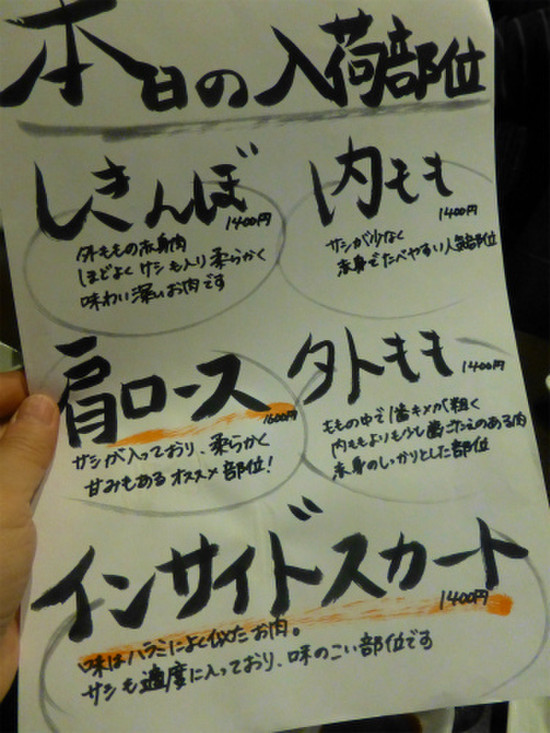 本日の入荷部位
しきんぼ
1400円
外ももの赤身肉
ほどよくサシも入り柔らかく
味わい深いお肉です
内もも
1400円
サシが少なく
赤身でたべやすい人気部位
肩ロース
1600円
サシが入っており、柔らかく
甘みもあるオススメ部位!
外もも
1400円
ももの中で1番キメが粗く
内ももよりも少し歯ごたえのある肉
赤身のしっかりとした部位
インサイドスカート
1400円
味はハラミによく似たお肉。
サシも適度に入っており、味のこい部位です